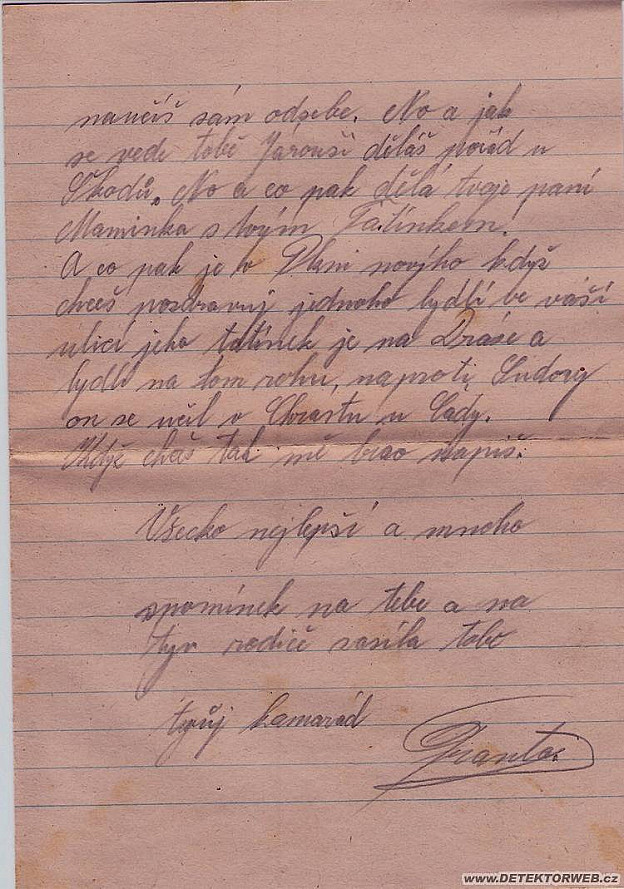 naučíš sám odsebe. No a jak
se vede tobě Járouši děláš pořád u
Škodů. No a co pak dělá tvoje paní
Maminka s tvým Tatínkem.
A co pak je v Plzni novýho když
chceš pozdravuj jednoho bydlí ve váší
ulici jeho tatínek je na Dráze a
bydlí na tom rohu, naproti
on se učil v Chrástu u
Když chceš tak mě brzo napiš.
Všecko nejlepší a mnoho
spomínek na tebe a na
tvy rodiče zasíla tobě
tvůj kamarád
Franta.
WWW.DETEKTORWEB.CZ